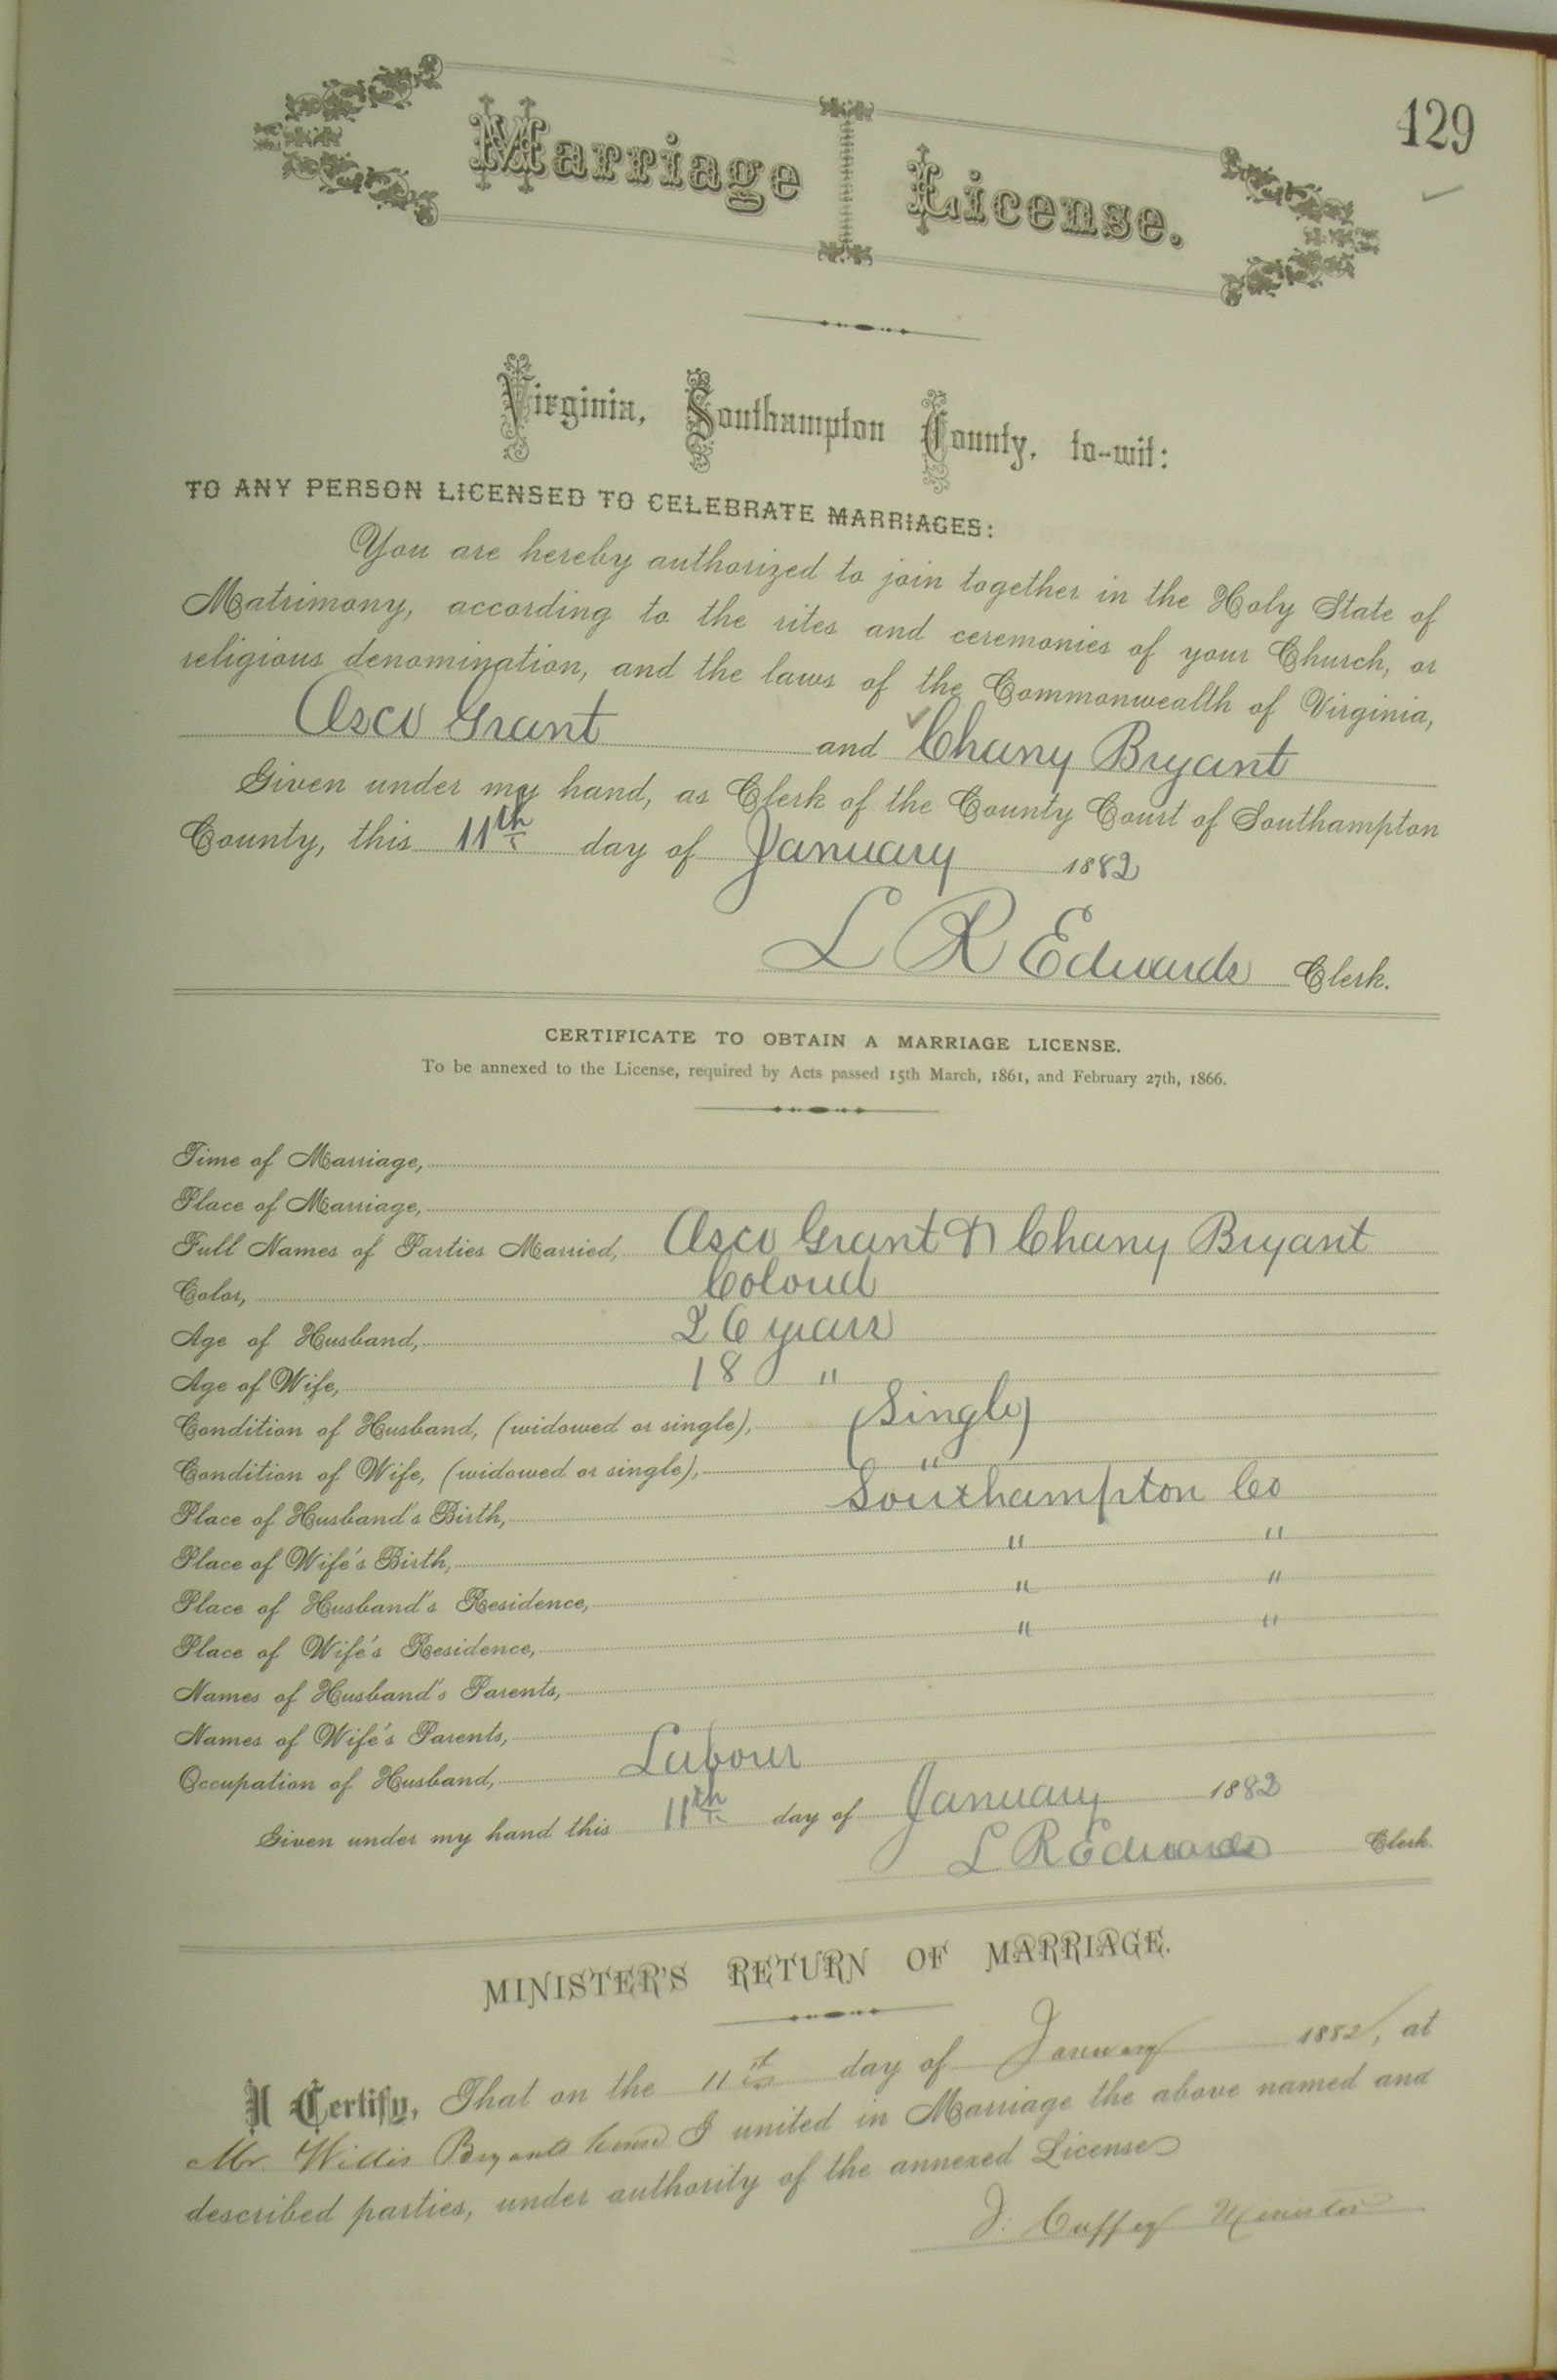 129
Marriage License.
Virginia, Southampton County, to-wit:
TO ANY PERSON LICENSED TO CELEBRATE MARRIAGES:
You are hereby authorized to join together in the Holy State of
Matrimony, according to the rites and ceremonies of your Church, or
religious denomination, and the laws of the Commonwealth of Virginia,
Asco Grant and Chany Bryant
Given under my hand, as Clerk of the County Court of Southampton
County, this 11th day of January 1882
L R Edwards Clerk.
CERTIFICATE TO OBTAIN A MARRIAGE LICENSE.
To be annexed to the License, required by Acts passed 15th March, 1861, and February 27th, 1866.
Time of Marriage,
Place of Marriage,
Full Names of Parties Married, Asco Grant & Chany Bryant
Color, Colord
Age of Husband, 26 years
Age of Wife, 18 "
Condition of Husband, (widowed or single), (Single)
Condition of Wife, (widowed or single), "
Place of Husband's Birth, Southampton Co
Place of Wife's Birth, " "
Place of Husband's Residence, " "
Place of Wife's Residence, " "
Names of Husband's Parents,
Names of Wife's Parents,
Occupation of Husband, Labour
Given under my hand this 11th day of January 1882
L R Edwards Clerk.
MINISTER'S RETURN OF MARRIAGE.
I Certify, That on the 11 day of January 1882, at
Mr. Willis Bryants I united in Marriage the above named and
described parties, under authority of the annexed License
J. Cuffey Minister